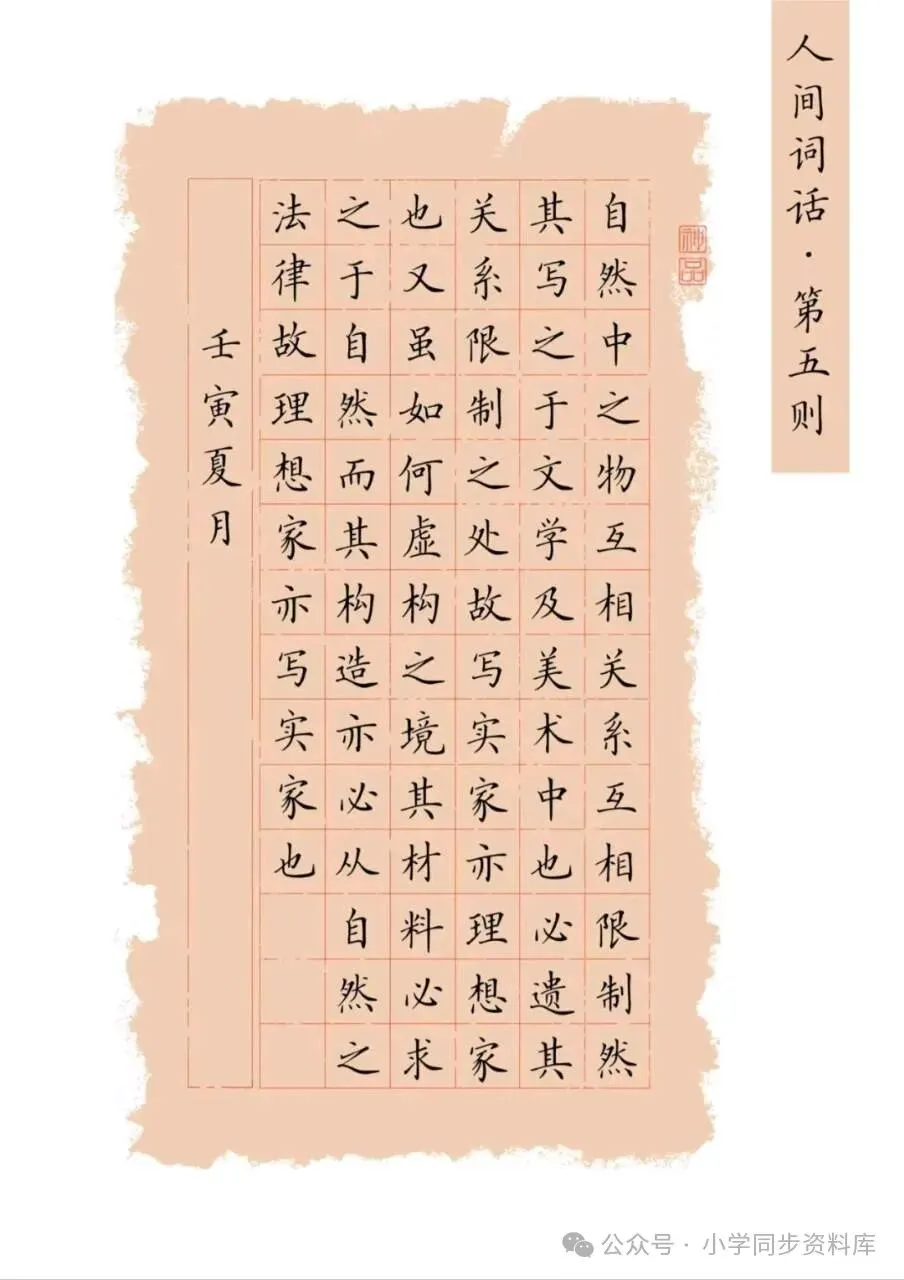 人间词话·第五则
自然中之物互相关系互相限制然
其写之于文学及美术中也必遗其
关系限制之处故写实家亦理想家
也又虽如何虚构之境其材料必求
之于自然而其构造亦必从自然之
法律故理想家亦写实家也
壬寅夏月
公众号·小学同步资料库